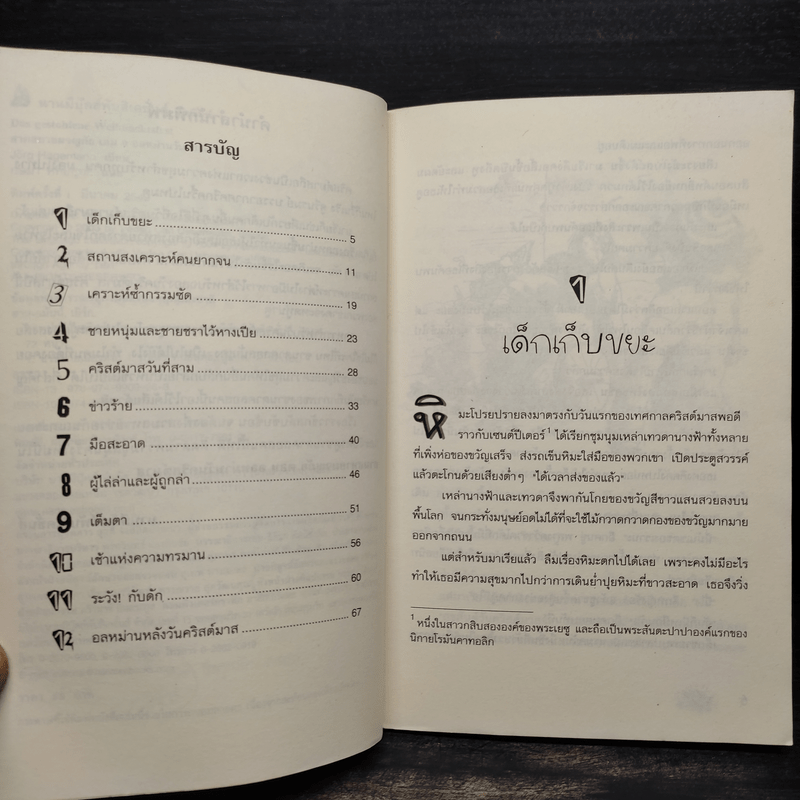 สารบัญ
1 เด็กเก็บขยะ 5
2 สถานสงเคราะห์คนยากจน 11
3 เคราะห์ซ้ำกรรมซัด 19
4 ชายหนุ่มและชายชราไว้หางเปีย 23
5 คริสต์มาสวันที่สาม 28
6 ข่าวร้าย 33
7 มือสะอาด 40
8 ผู้ไล่ล่าและผู้ถูกล่า 46
9 เต็มดา 51
10 เช้าแห่งความทรมาน 56
11 ระวัง! กับดัก 60
12 อลหม่านหลังวันคริสต์มาส 67
1
เด็กเก็บขยะ
หิมะโปรยปรายลงมาตรงกับวันแรกของเทศกาลคริสต์มาสพอดี
ราวกับเซนต์ปีเตอร์1 ได้เรียกชุมนุมเหล่าเทวดานางฟ้าทั้งหลาย
ที่เพิ่งห่อของขวัญเสร็จ ส่งรถเข็นหิมะใส่มือของพวกเขา เปิดประตูสวรรค์
แล้วตะโกนด้วยเสียงต่ำๆ "ได้เวลาส่งของแล้ว"
เหล่านางฟ้าและเทวดาจึงพากันโกยของขวัญสีขาวแสนสวยลงบน
พื้นโลก จนกระทั่งมนุษย์อดไม่ได้ที่จะใช้ไม้กวาดกวาดกองของขวัญมากมาย
ออกจากถนน
แต่สำหรับมาเรียแล้ว ลืมเรื่องหิมะตกไปได้เลย เพราะคงไม่มีอะไร
ทำให้เธอมีความสุขมากไปกว่าการเดินย่ำปุยหิมะที่ขาวสะอาด เธอจึงวิ่ง
1 หนึ่งในสาวกสิบสององค์ของพระเยซู และถือเป็นพระสันตะปาปาองค์แรกของ
นิกายโรมันคาทอลิก